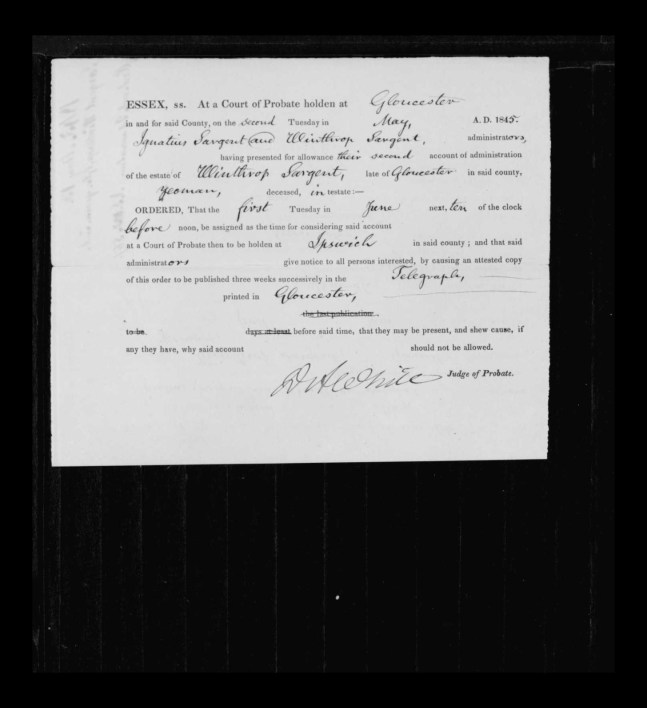 ESSEX, ss. At a Court of Probate holden at Gloucester
in and for said County, on the second Tuesday in May, A. D. 1845.
Ignatius Sargent and Winthrop Sargent, administrators,
having presented for allowance their second account of administration
of the estate of Winthrop Sargent, late of Gloucester in said county,
Yeoman, deceased, intestate:—
ORDERED, That the first Tuesday in June next, ten of the clock
before noon, be assigned as the time for considering said account
at a Court of Probate then to be holden at Ipswich in said county; and that said
administrators give notice to all persons interested, by causing an attested copy
of this order to be published three weeks successively in the Telegraph,
printed in Gloucester,
the last publication
to be days at least before said time, that they may be present, and shew cause, if
any they have, why said account should not be allowed.
D A White Judge of Probate.